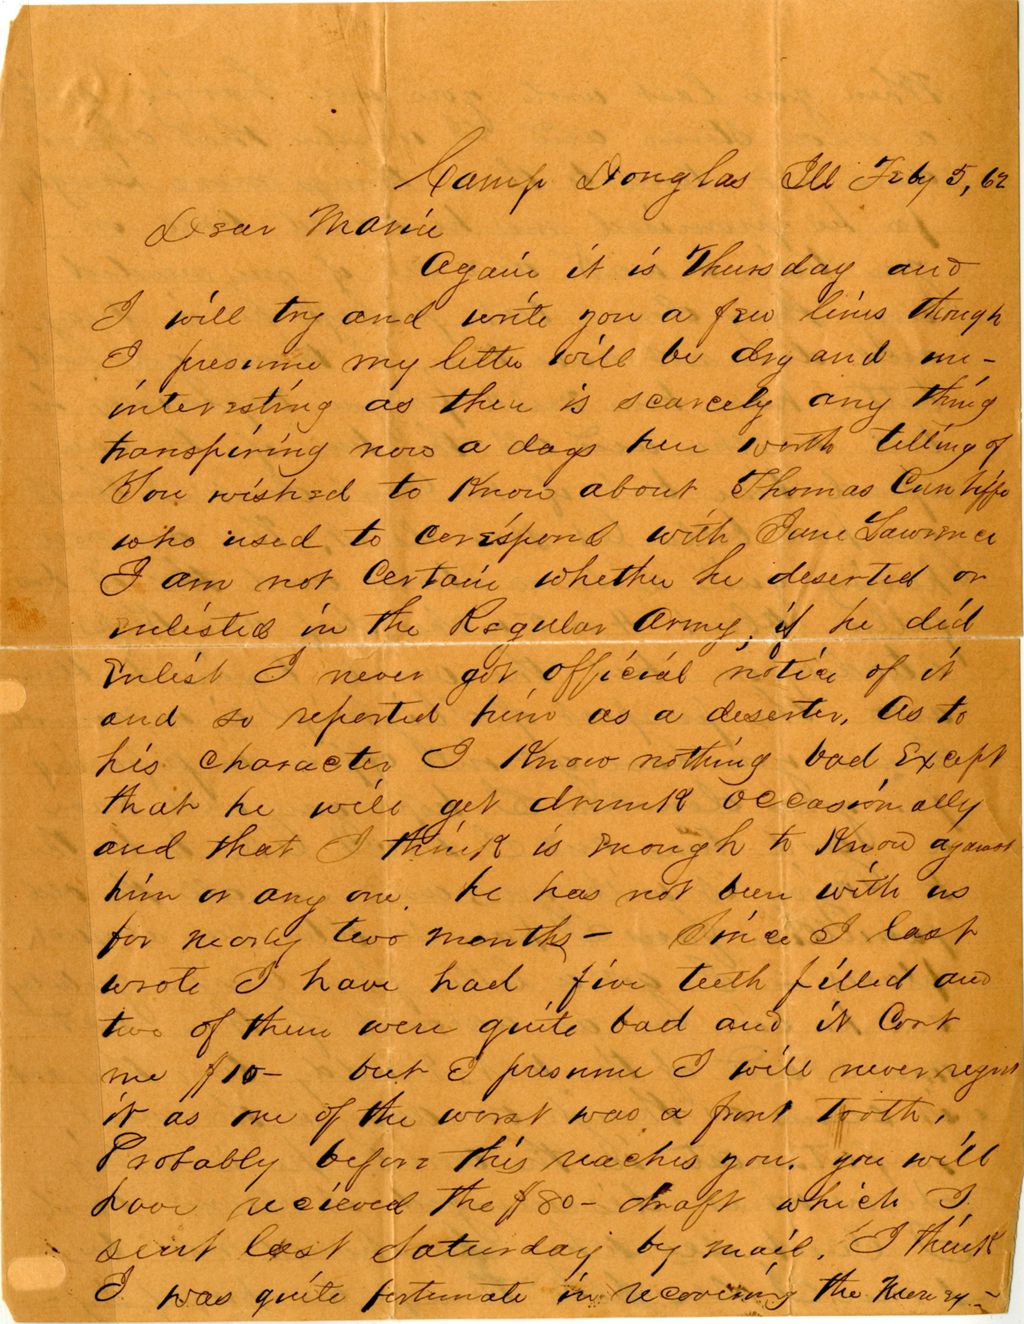 Camp Douglas Ill Feby 5, 62
Dear Marie
Again it is Thursday and
I will try and write you a few lines though
I presume my letter will be dry and un-
interesting as there is scarcely any thing
transpiring now a days here worth telling of
You wished to know about Thomas Cunliffe
who used to corespond with Jane Lawrence
I am not certain whether he deserted or
enlisted in the Regular Army, if he did
enlist I never got official notice of it
and so reported him as a deserter. As to
his character I know nothing bad except
that he will get drunk occasionally
and that I think is enough to know against
him or any one. he has not been with us
for nearly two months - Since I last
wrote I have had five teeth filled and
two of them were quite bad and it cost
me $10- but I presume I will never regret
it as one of the worst was a front tooth.
Probably before this reaches you. you will
have recieved the $80- draft which I
sent last Saturday by mail. I think
I was quite fortunate in recovering the